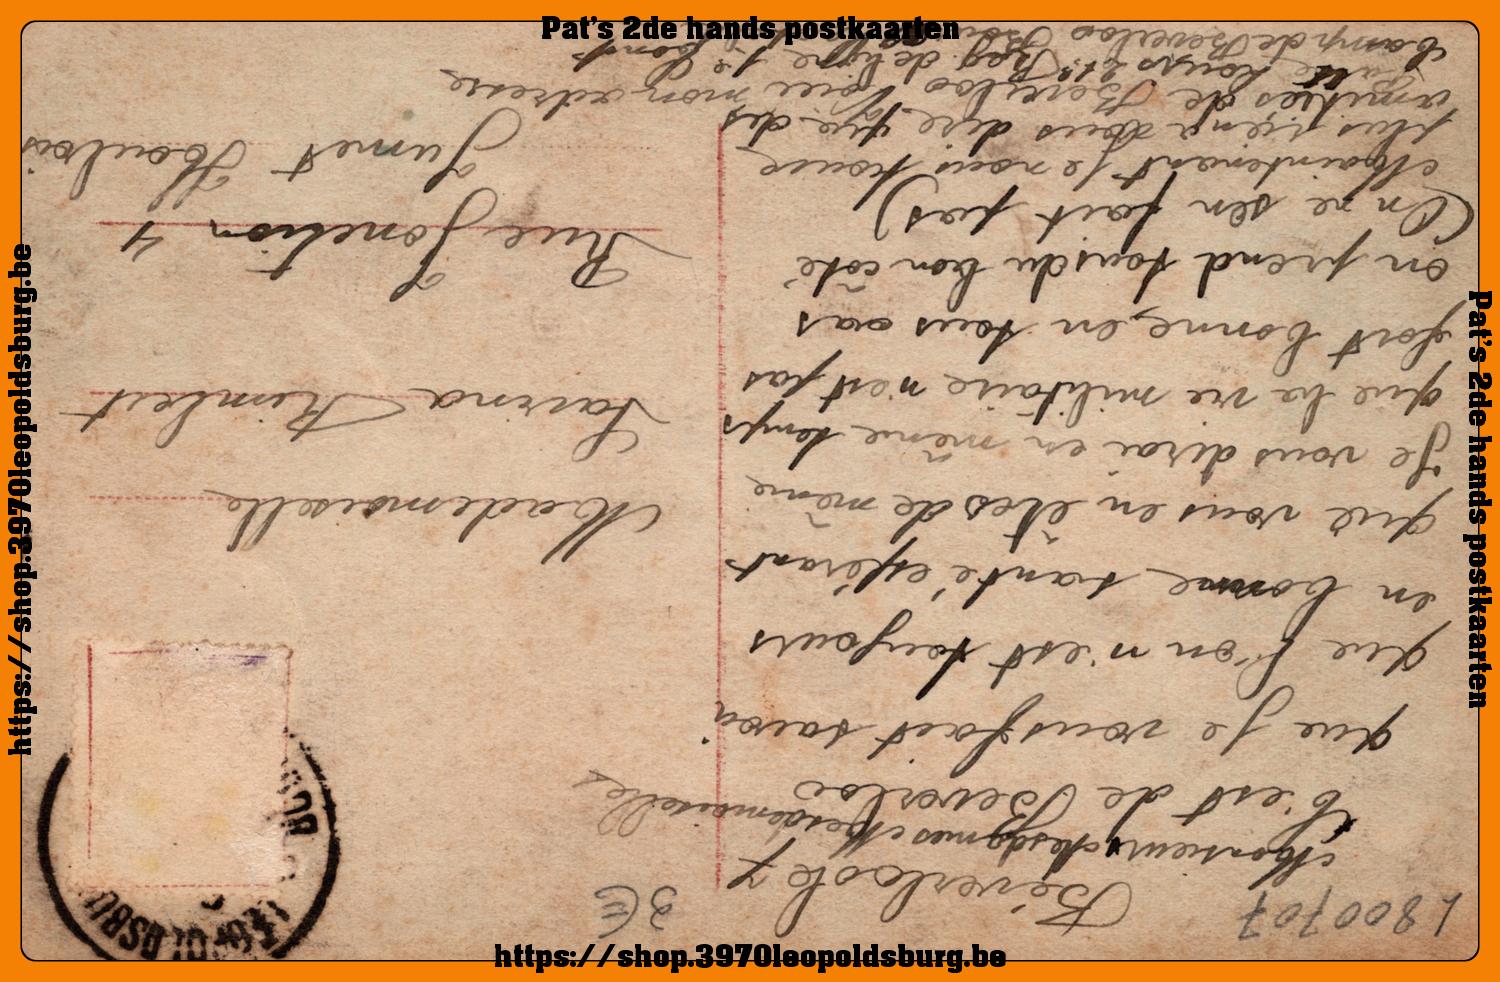 Pat's 2de hands postkaarten
https://shop.3970leopoldsburg.be
Pat's 2de hands postkaarten
https://shop.3970leopoldsburg.be
L800707
3€
Béverloo le 7
Monsieurs Mesdames et Mesdemoiselles
C'est de Beverloo
que je vous fait savoir
que l'on n'est toujours
en bonne santé espérant
que vous en êtes de même
Je vous dirai en même temps
que la vie militaire n'est pas
fort bonne, en tous cas
on prend tous du bon coté
(On ne s'en fait pas)
Maintenant je nous trouve
plus rien a vous dire que des
amitiés de Beverloo Voici mon adresse
Reg de ligne
Camp de Beverloo
Mademoiselle
Laurna Rimbert
Rue Jonction 4
Jumet Houbois
BOURG
LEOPOLDSBU